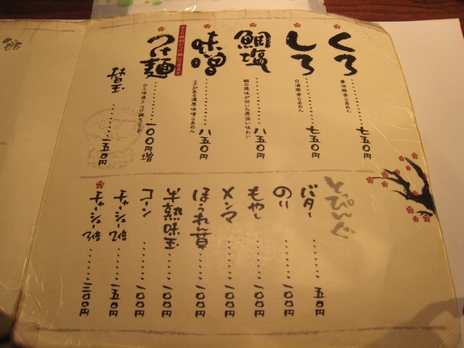 くろ……七五〇円
しろ……七五〇円
鯛塩……八五〇円
味噌……八五〇円
コクがある濃厚味噌らーめん
つけ麺……一〇〇円増
替玉……一五〇円
とぴんぐ
バター……五〇円
のり……一〇〇円
もやし……一〇〇円
メンマ……一〇〇円
ほうれん草……一〇〇円
コーン……一〇〇円
チャーシュー……一五〇円
チャーシュー……三〇〇円